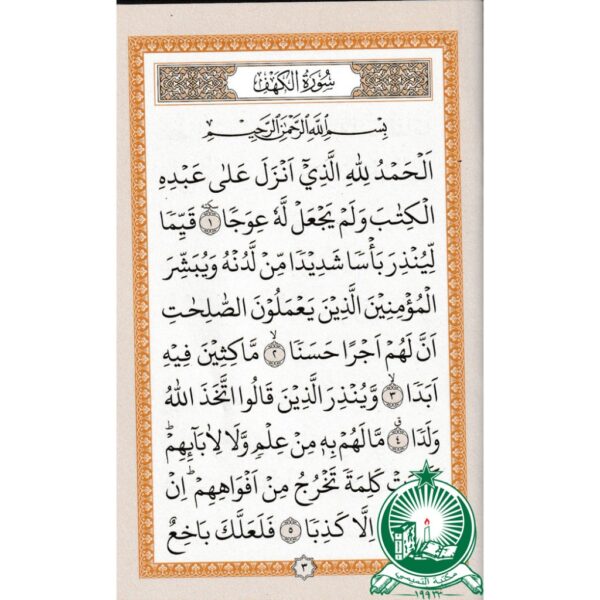 سُوْرَةُ الْكَهْفِ
بِسْمِ اللّٰهِ الرَّحْمٰنِ الرَّحِيْمِ
اَلْحَمْدُ لِلّٰهِ الَّذِيْٓ اَنْزَلَ عَلٰى عَبْدِهِ
الْكِتٰبَ وَلَمْ يَجْعَلْ لَّهٗ عِوَجًا ۜ ﴿۱﴾ قَيِّمًا
لِّيُنْذِرَ بَأْسًا شَدِيْدًا مِّنْ لَّدُنْهُ وَيُبَشِّرَ
الْمُؤْمِنِيْنَ الَّذِيْنَ يَعْمَلُوْنَ الصّٰلِحٰتِ
اَنَّ لَهُمْ اَجْرًا حَسَنًا ۙ ﴿۲﴾ مَّاكِثِيْنَ فِيْهِ
اَبَدًا ۙ ﴿۳﴾ وَّيُنْذِرَ الَّذِيْنَ قَالُوا اتَّخَذَ اللّٰهُ
وَلَدًا ق ﴿۴﴾ مَّا لَهُمْ بِهٖ مِنْ عِلْمٍ وَّلَا لِاٰبَآئِهِمْ ؕ
كَلِمَةً تَخْرُجُ مِنْ اَفْوَاهِهِمْ ؕ اِنْ
اِلَّا كَذِبًا ﴿۵﴾ فَلَعَلَّكَ بَاخِعٌ
۳
مكتبة التميمي
۱۹۹۳